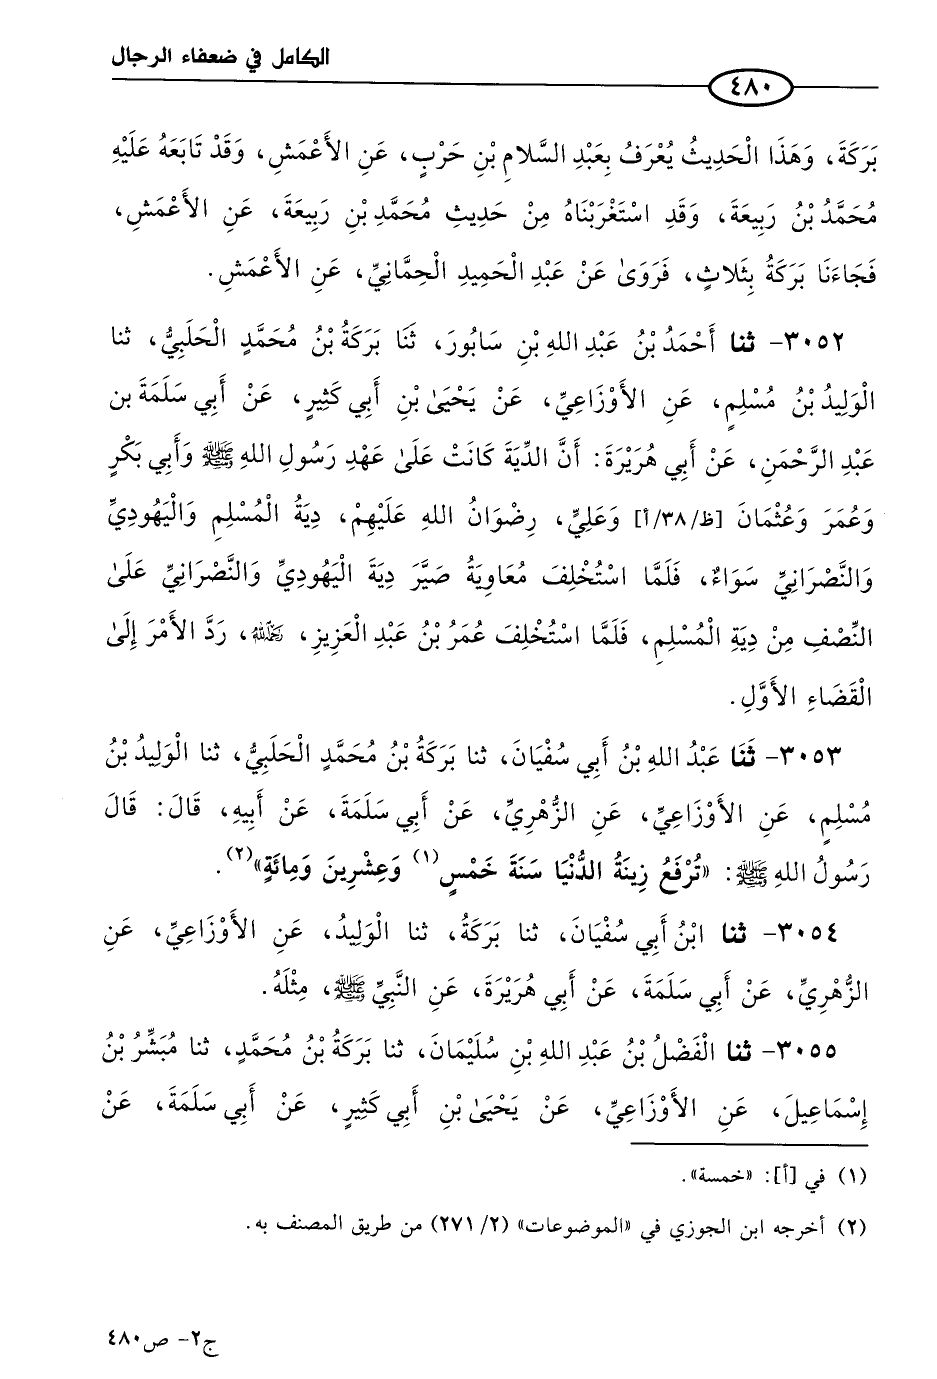 الكامل في ضعفاء الرجال
٤٨٠
بَرَكَةَ، وَهَذَا الْحَدِيثُ يُعْرَفُ بِعَبْدِ السَّلامِ بْنِ حَرْبٍ، عَنِ الأَعْمَشِ، وَقَدْ تَابَعَهُ عَلَيْهِ
مُحَمَّدُ بْنُ رَبِيعَةَ، وَقَدِ اسْتَغْرَبْنَاهُ مِنْ حَدِيثِ مُحَمَّدِ بْنِ رَبِيعَةَ، عَنِ الأَعْمَشِ،
فَجَاءَنَا بَرَكَةُ بِثَلاثٍ، فَرَوَىٰ عَنْ عَبْدِ الْحَمِيدِ الْحِمَّانِيِّ، عَنِ الأَعْمَشِ.
٣٠٥٢- ثنا أَحْمَدُ بْنُ عَبْدِ اللهِ بْنِ سَابُورَ، ثَنَا بَرَكَةُ بْنُ مُحَمَّدٍ الْحَلَبِيُّ، ثنا
الْوَلِيدُ بْنُ مُسْلِمٍ، عَنِ الأَوْزَاعِيِّ، عَنْ يَحْيَىٰ بْنِ أَبِي كَثِيرٍ، عَنْ أَبِي سَلَمَةَ بن
عَبْدِ الرَّحْمَنِ، عَنْ أَبِي هُرَيْرَةَ: أَنَّ الدِّيَةَ كَانَتْ عَلَىٰ عَهْدِ رَسُولِ اللهِ ﷺ وَأَبِي بَكْرٍ
وَعُمَرَ وَعُثْمَانَ [ظ/٣٨/أ] وَعَلِيٍّ، رِضْوَانُ اللهِ عَلَيْهِمْ، دِيَةُ الْمُسْلِمِ وَالْيَهُودِيِّ
وَالنَّصْرَانِيِّ سَوَاءٌ، فَلَمَّا اسْتُخْلِفَ مُعَاوِيَةُ صَيَّرَ دِيَةَ الْيَهُودِيِّ وَالنَّصْرَانِيِّ عَلَىٰ
النِّصْفِ مِنْ دِيَةِ الْمُسْلِمِ، فَلَمَّا اسْتُخْلِفَ عُمَرُ بْنُ عَبْدِ الْعَزِيزِ، رَحِمَهُ اللهُ، رَدَّ الأَمْرَ إِلَىٰ
الْقَضَاءِ الأَوَّلِ.
٣٠٥٣- ثَنَا عَبْدُ اللهِ بْنُ أَبِي سُفْيَانَ، ثنا بَرَكَةُ بْنُ مُحَمَّدٍ الْحَلَبِيُّ، ثنا الْوَلِيدُ بْنُ
مُسْلِمٍ، عَنِ الأَوْزَاعِيِّ، عَنِ الزُّهْرِيِّ، عَنْ أَبِي سَلَمَةَ، عَنْ أَبِيهِ، قَالَ: قَالَ
رَسُولُ اللهِ ﷺ: «تُرْفَعُ زِينَةُ الدُّنْيَا سَنَةَ خَمْسٍ(١) وَعِشْرِينَ وَمِائَةٍ»(٢).
٣٠٥٤- ثنا ابْنُ أَبِي سُفْيَانَ، ثنا بَرَكَةُ، ثنا الْوَلِيدُ، عَنِ الأَوْزَاعِيِّ، عَنِ
الزُّهْرِيِّ، عَنْ أَبِي سَلَمَةَ، عَنْ أَبِي هُرَيْرَةَ، عَنِ النَّبِيِّ ﷺ، مِثْلَهُ.
٣٠٥٥- ثنا الْفَضْلُ بْنُ عَبْدِ اللهِ بْنِ سُلَيْمَانَ، ثنا بَرَكَةُ بْنُ مُحَمَّدٍ، ثنا مُبَشِّرُ بْنُ
إِسْمَاعِيلَ، عَنِ الأَوْزَاعِيِّ، عَنْ يَحْيَىٰ بْنِ أَبِي كَثِيرٍ، عَنْ أَبِي سَلَمَةَ، عَنْ
(١) في [أ]: «خمسة».
(٢) أخرجه ابن الجوزي في «الموضوعات» (٢/ ٢٧١) من طريق المصنف به.
ج٢- ص٤٨٠